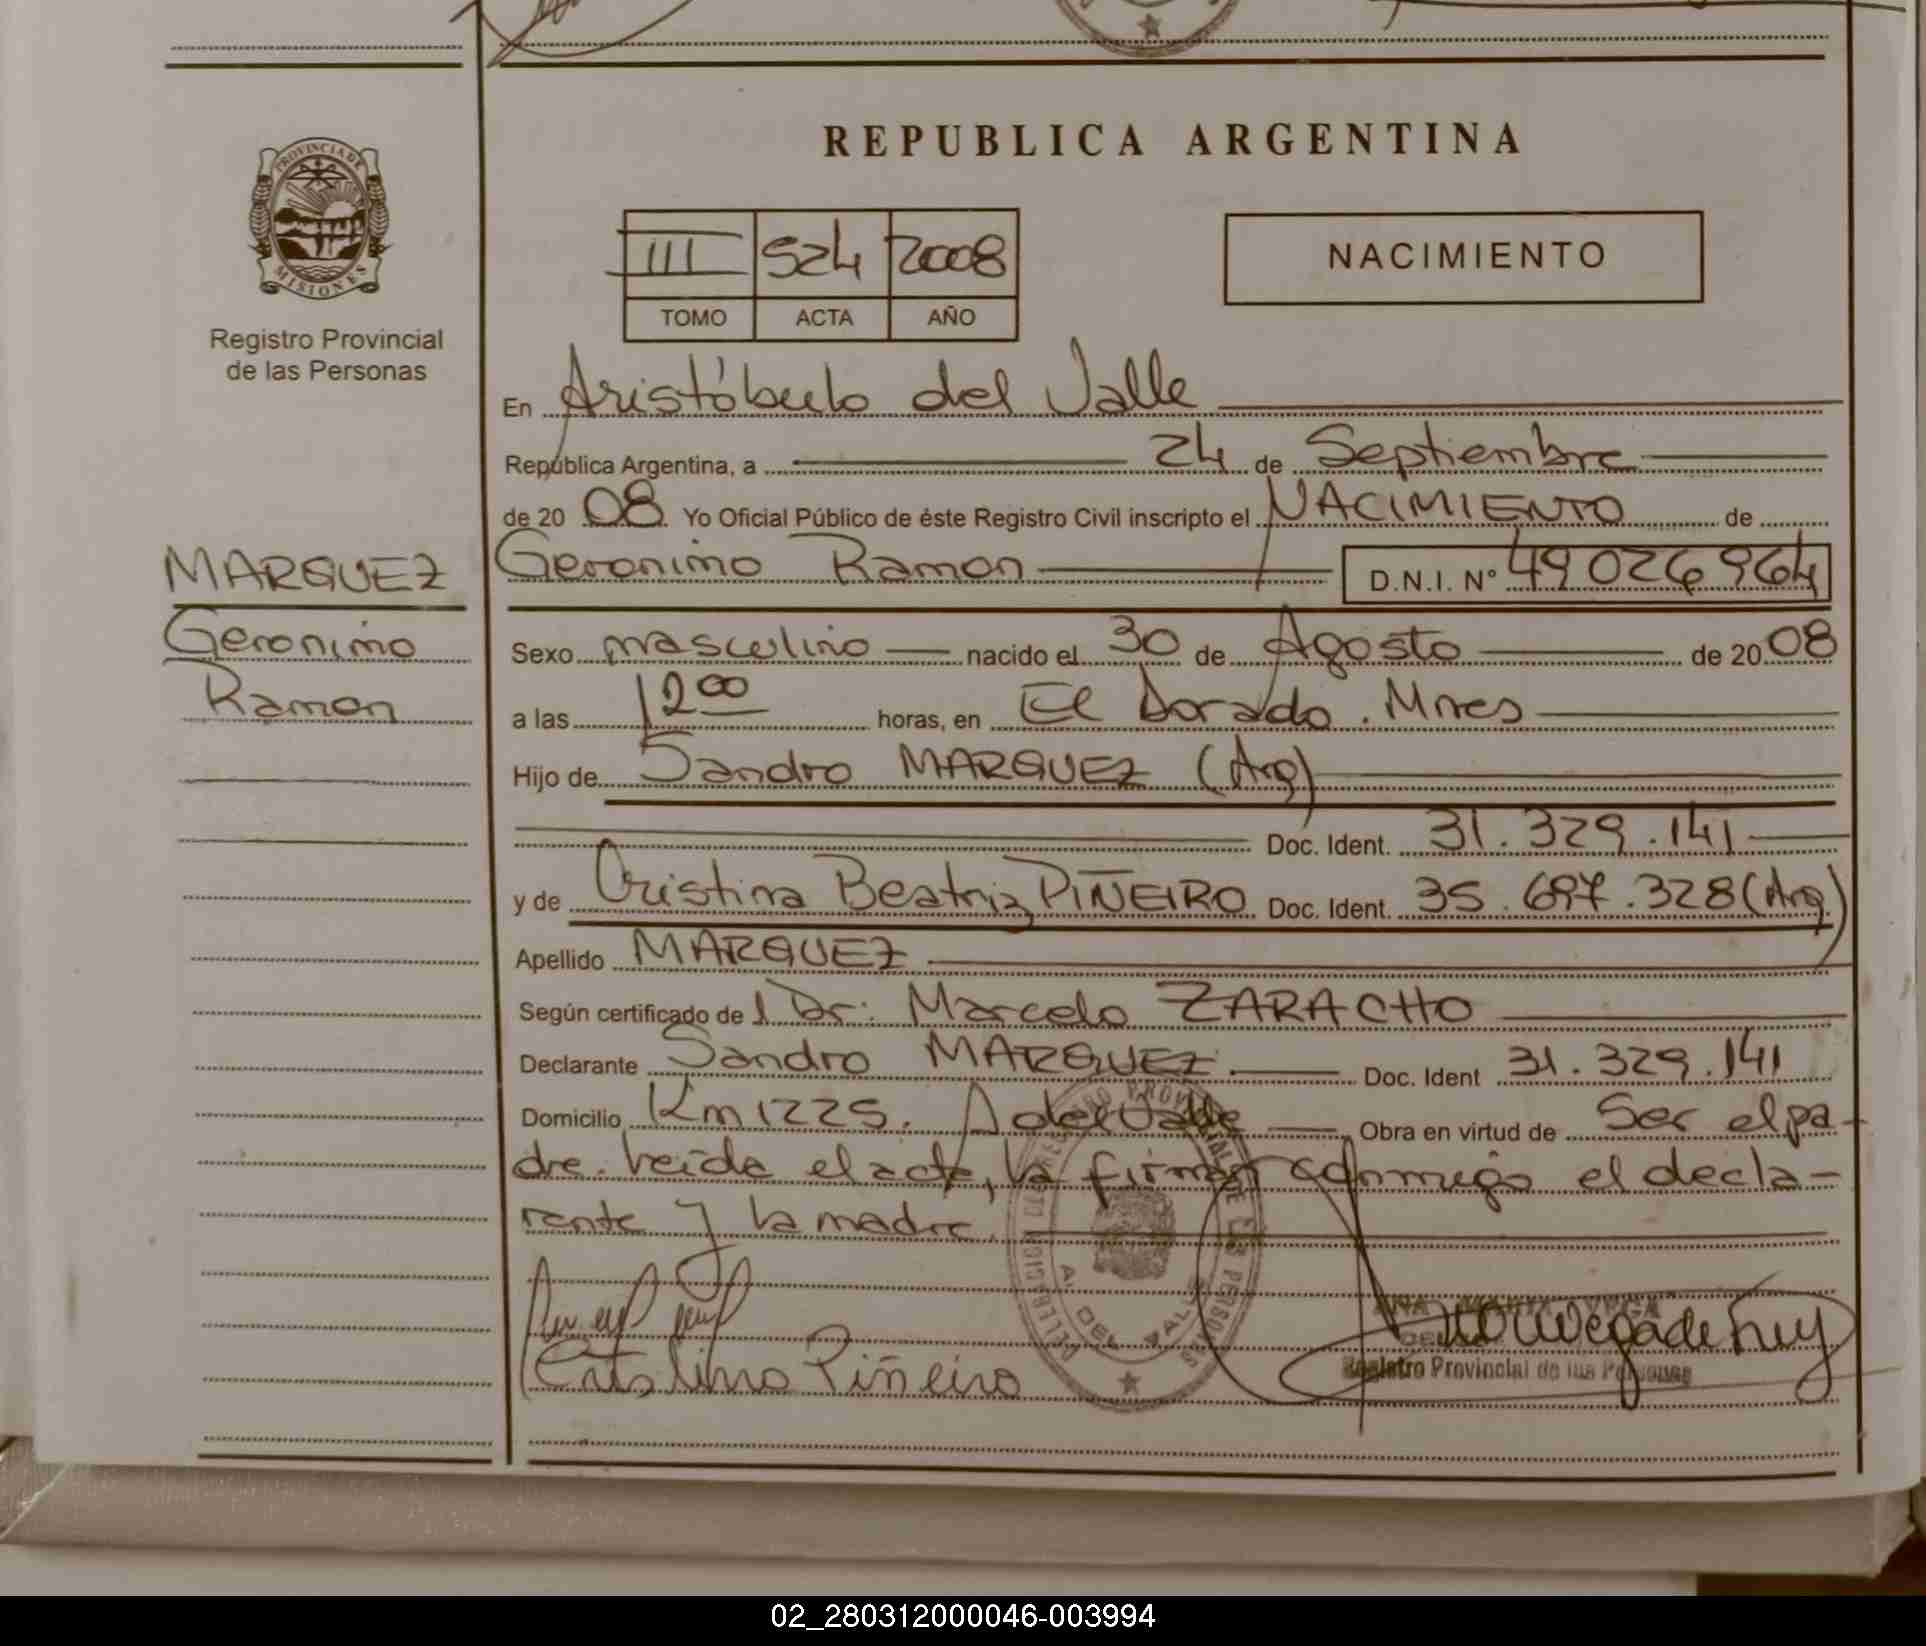 PROVINCIA DE
MISIONES
Registro Provincial
de las Personas
MARQUEZ
Geronimo
Ramon
REPUBLICA ARGENTINA
III 524 2008
TOMO ACTA AÑO
NACIMIENTO
En Aristóbulo del Valle
República Argentina, a 24 de Septiembre
de 20 08 Yo Oficial Público de éste Registro Civil inscripto el NACIMIENTO de
Geronimo Ramon D.N.I. N° 49026964
Sexo masculino nacido el 30 de Agosto de 20 08
a las 12 00 horas, en El Dorado. Mnes
Hijo de Sandro MARQUEZ (Arg)
Doc. Ident. 31.329.141
y de Cristina Beatriz PIÑEIRO Doc. Ident. 35.697.328 (Arg)
Apellido MARQUEZ
Según certificado de l Dr. Marcelo ZARACHO
Declarante Sandro MARQUEZ Doc. Ident 31.329.141
Domicilio Km 1225. A del Valle Obra en virtud de Ser el pa-
dre. leida el acta, la firman conmigo el decla-
rante y la madre.
A. DEL VALLE
ANA MARIA VEGA
Registro Provincial de las Personas
Cristina Piñeiro
02_280312000046-003994